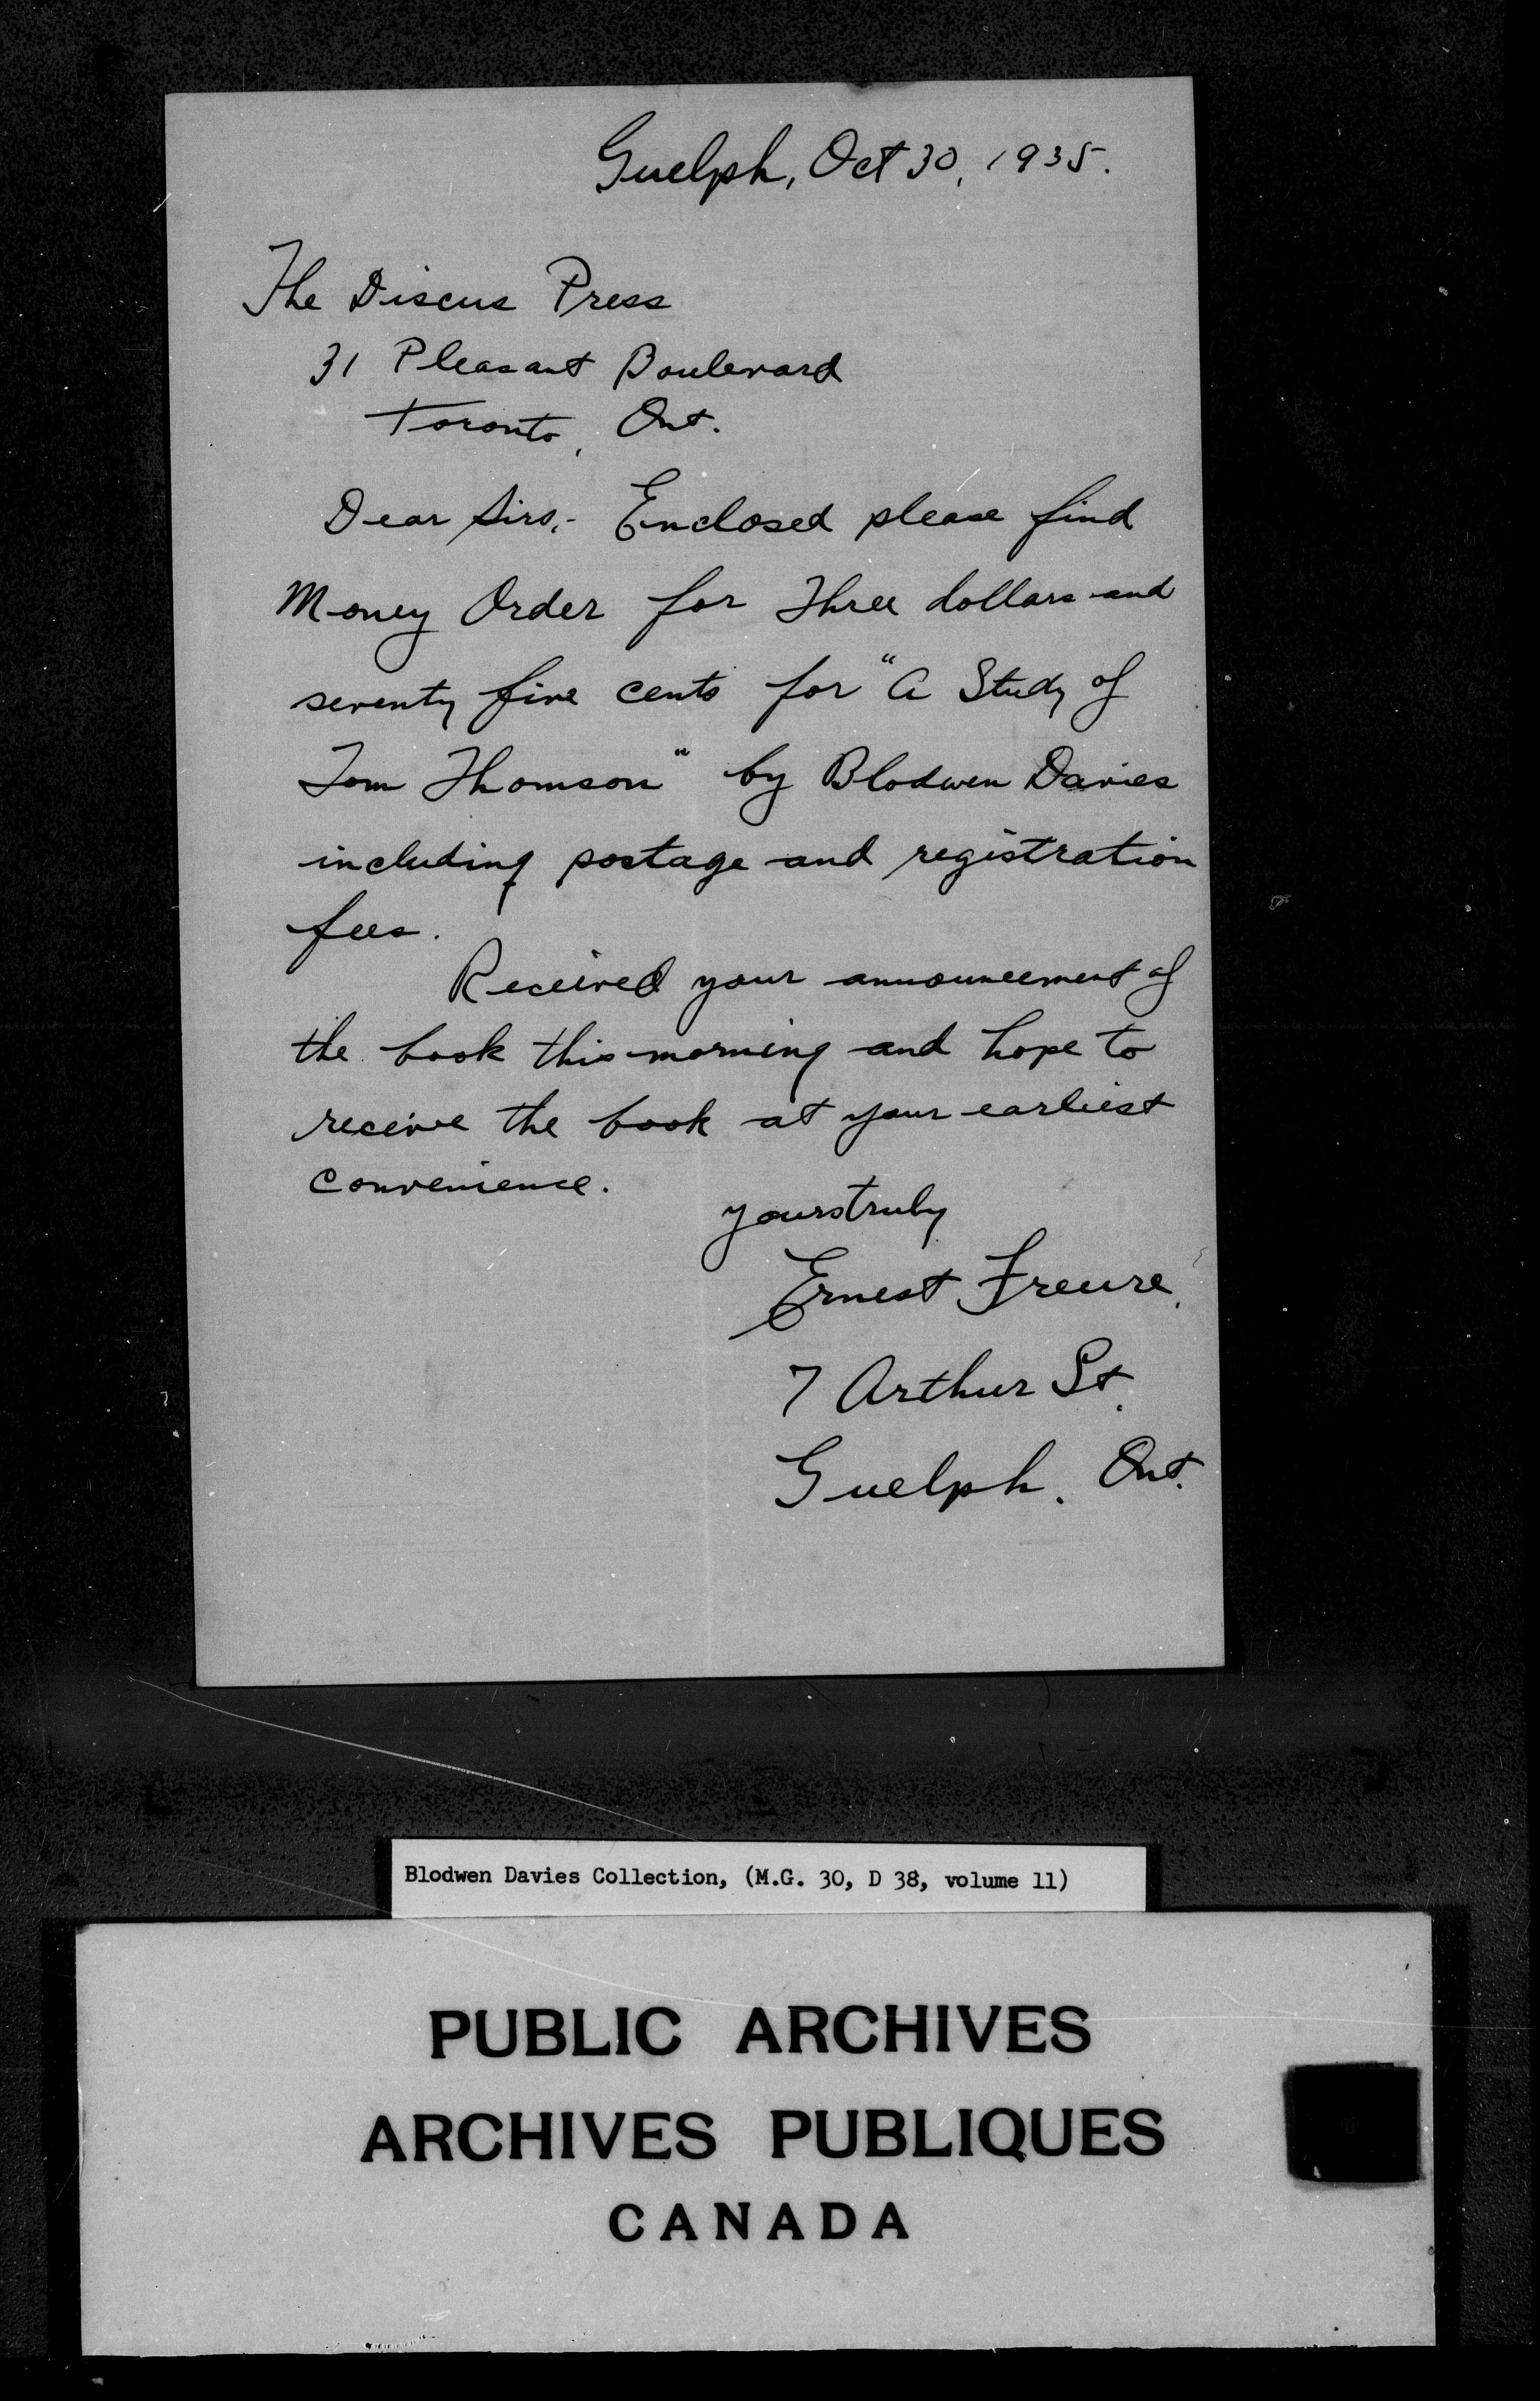 Guelph, Oct 30, 1935.
The Discus Press
31 Pleasant Boulevard
Toronto, Ont.
Dear Sirs,- Enclosed please find
Money Order for Three dollars and
seventy five cents for "A Study of
Tom Thomson" by Blodwen Davies
including postage and registration
fees.
Received your announcement of
the book this morning and hope to
receive the book at your earliest
convenience.
yours truly
Ernest Freure.
7 Arthur St.
Guelph. Ont.
Blodwen Davies Collection, (M.G. 30, D 38, volume 11)
PUBLIC ARCHIVES
ARCHIVES PUBLIQUES
CANADA